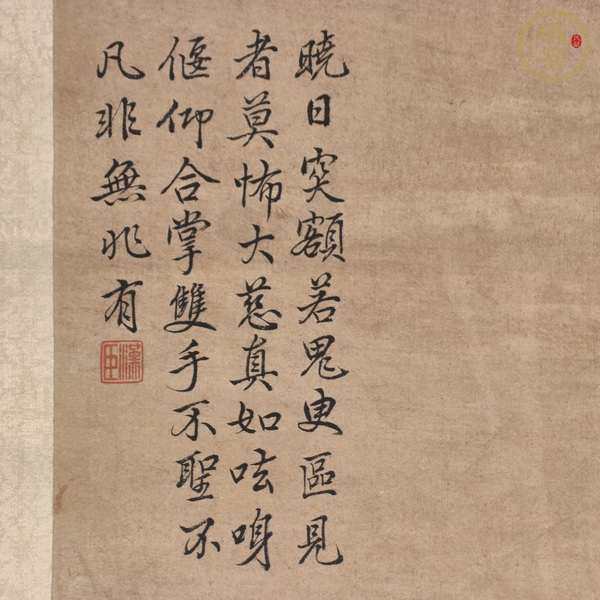 曉日突額若鬼臾區見
者莫怖大慈真如呿呻
偃仰合掌雙手不聖不
凡非無非有
漢臣